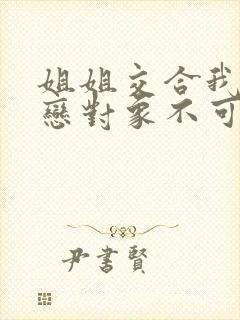 姐姐交合我
戀對象不可
尹書賢